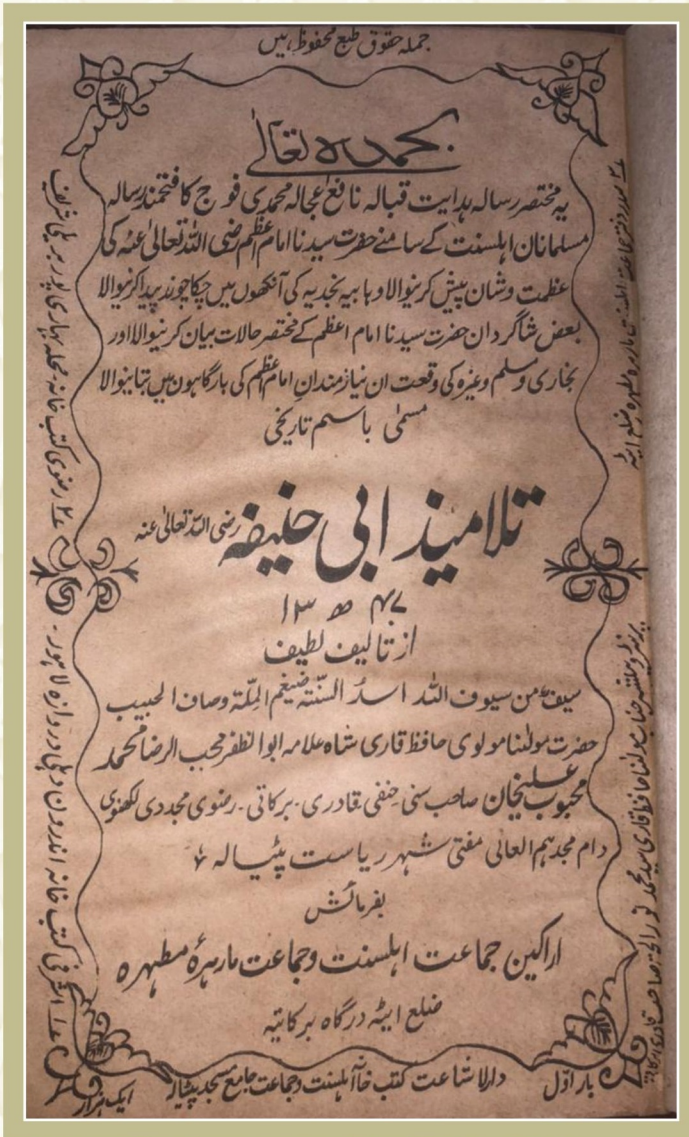 جملہ حقوق طبع محفوظ ہیں
بحمدہ تعالٰی
یہ مختصر رسالہ ہدایت قبالہ نافع عجالہ محمدی فوج کا فتحمند رسالہ
مسلمانان اہلسنت کے سامنے حضرت سیدنا امام اعظم رضی اللہ تعالیٰ عنہ کی
عظمت و شان پیش کرنیوالا وہابیہ نجدیہ کی آنکھوں میں چکاچوند پیدا کرنیوالا
بعض شاگردان حضرت سیدنا امام اعظم کے مختصر حالات بیان کرنیوالا اور
بخاری و مسلم وغیرہ کی وقعت ان نیازمندان امام اعظم کی بارگاہوں میں بتانیوالا
مسمٰی باسم تاریخی
تلامیذ ابی حنیفہ رضی اللہ تعالیٰ عنہ
۱۳ھ۴۷
از تالیف لطیف
سیف من سیوف اللہ اسد السنۃ ضیغم الملۃ وصاف الحبیب
حضرت مولٰنا مولوی حافظ قاری شاہ علامہ ابوالظفر محب الرضا محمد
محبوب علیخان صاحب سنی حنفی قادری۔ برکاتی۔ رضوی مجددی لکھنوی
دام مجدہم العالی مفتی شہر ریاست پٹیالہ
بفرمائش
اراکین جماعت اہلسنت وجماعت مارہرہ مطہرہ
ضلع ایٹہ درگاہ برکاتیہ
بار اول
دارالاشاعت کتب خانہ اہلسنت وجماعت جامع مسجد پٹیالہ
ایک ہزار
دفتر جماعت اہلسنت مارہرہ مطہرہ ضلع ایٹہ
پرنٹر و پبلشر جناب مولٰنا حافظ قاری سید محمد نور الحق صاحب قادری
۲ رضوی کتب خانہ محلہ بہاری پور بریلی شریف
۱ اشرفی کتب خانہ اندرون دہلی دروازہ لاہور۔